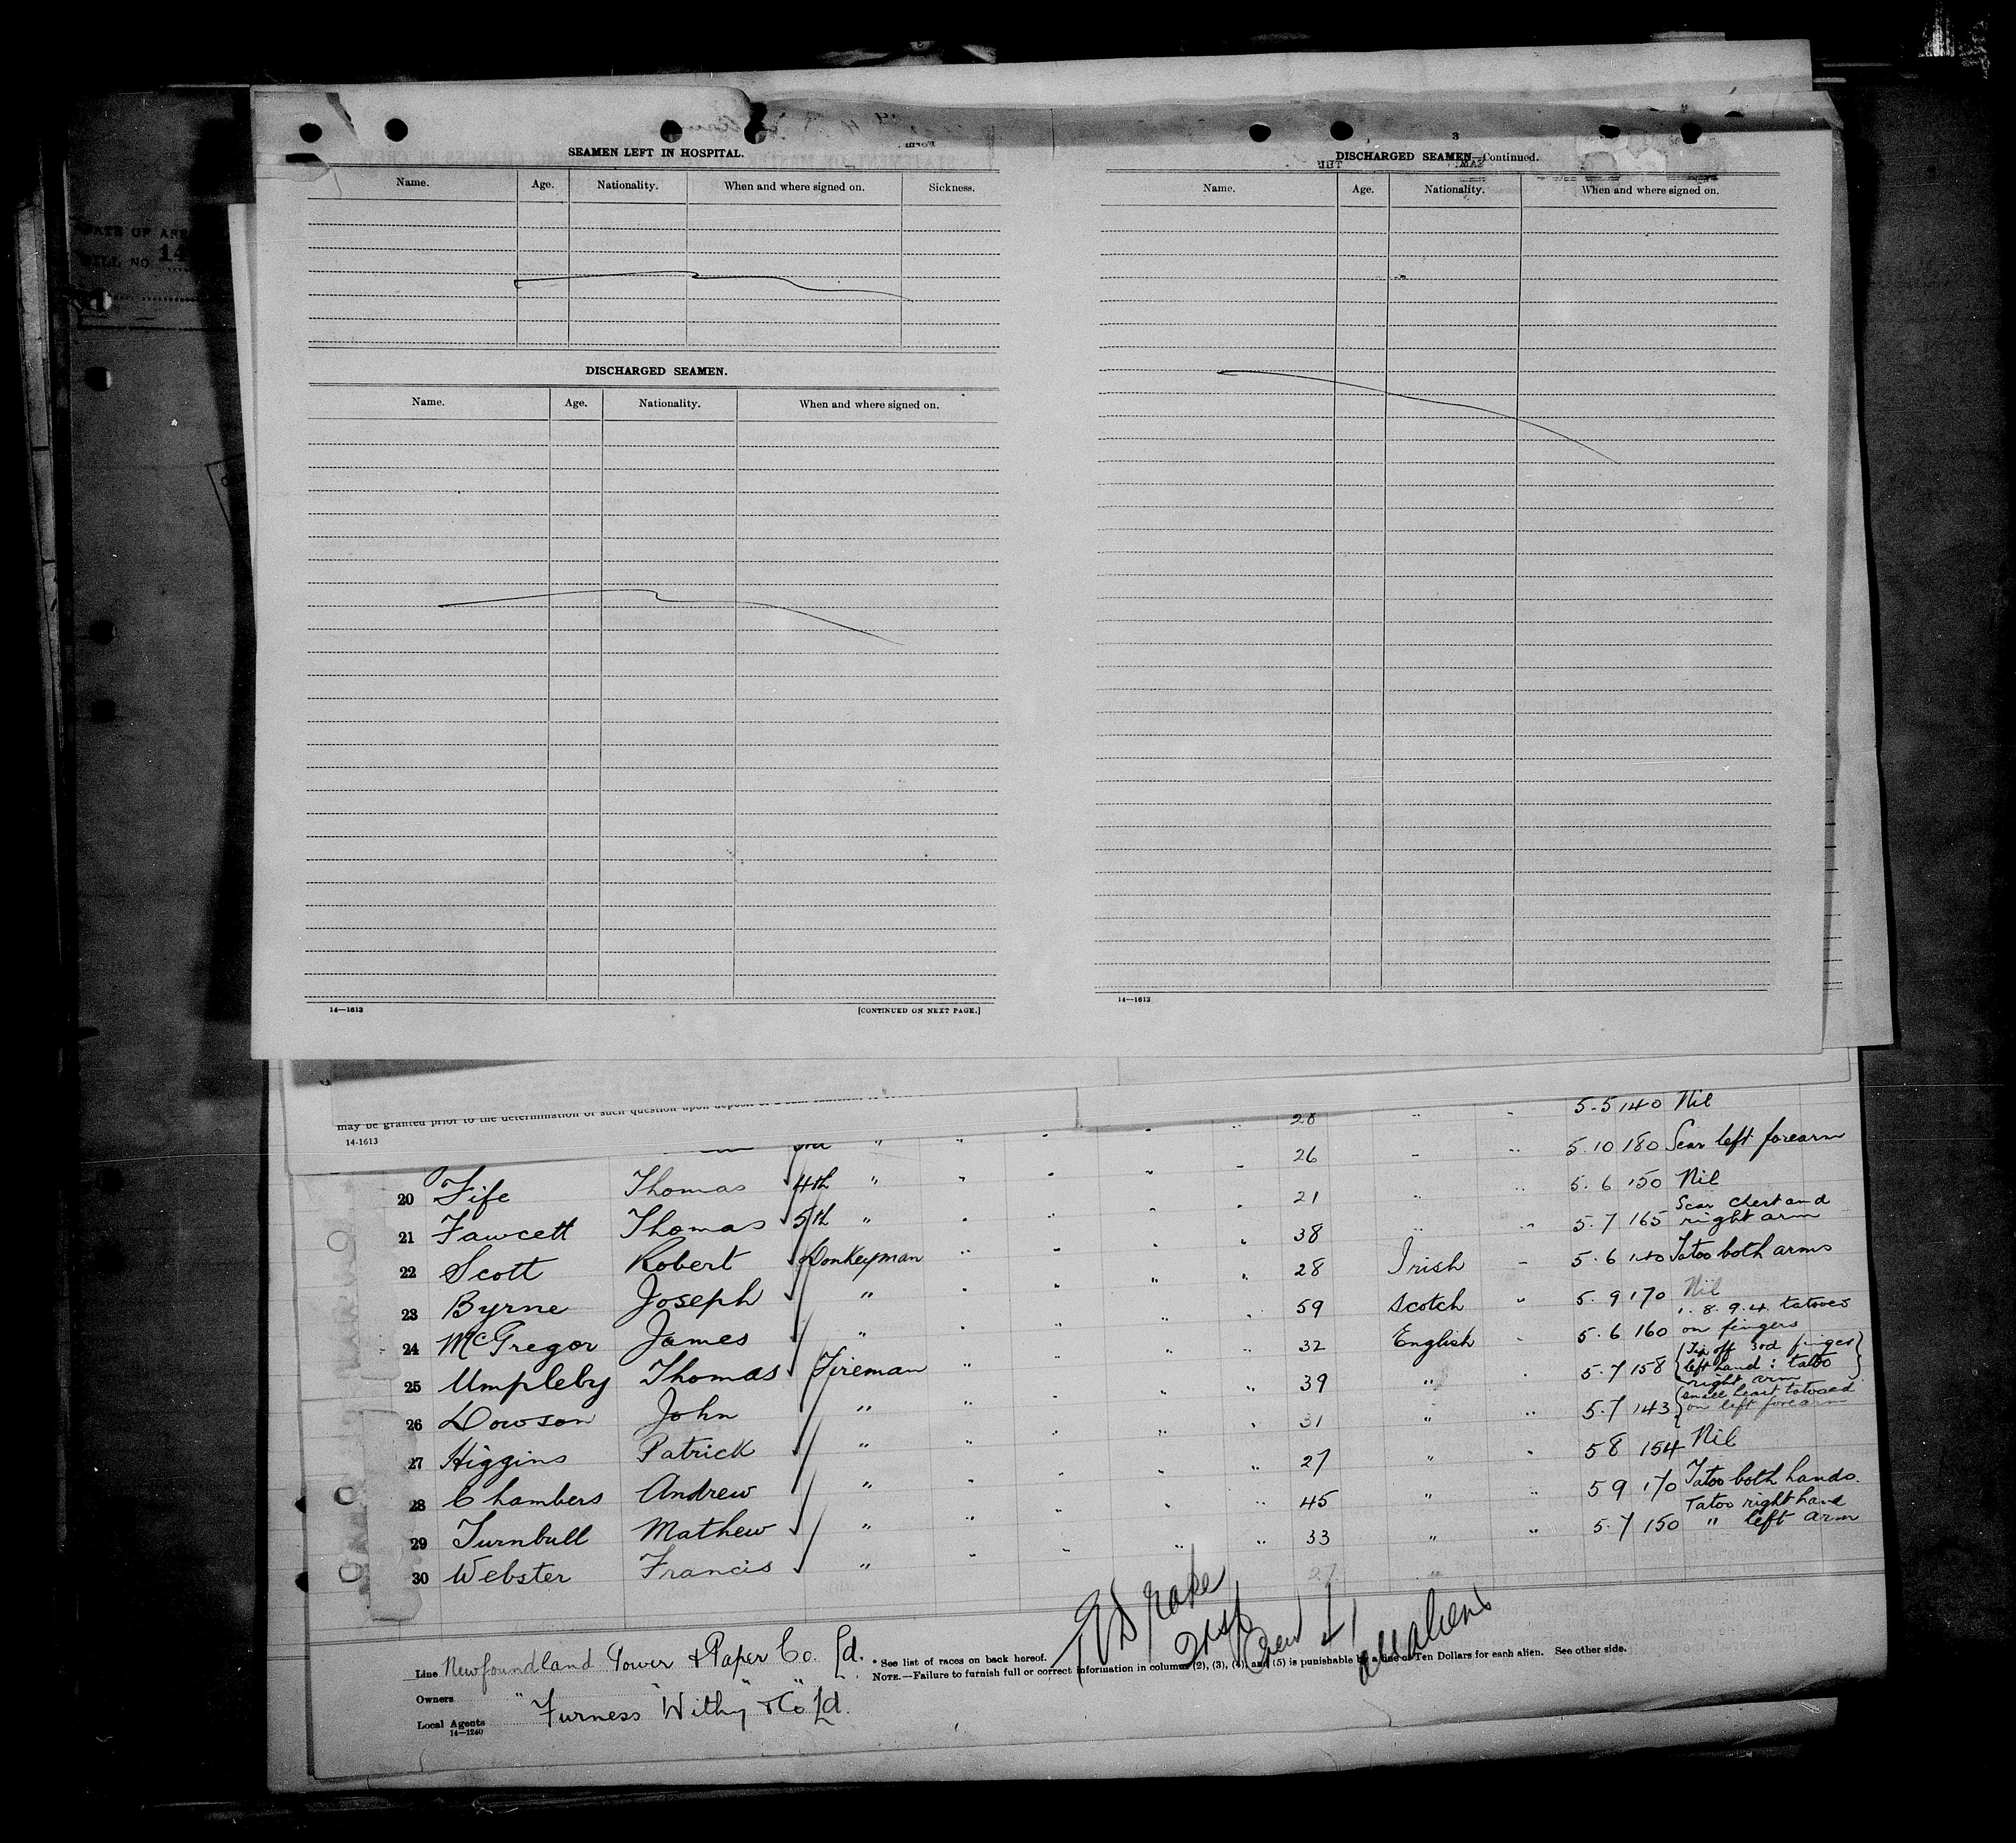 3
SEAMEN LEFT IN HOSPITAL.
Name. Age. Nationality. When and where signed on. Sickness.
DISCHARGED SEAMEN.
Name. Age. Nationality. When and where signed on.
14—1613 [CONTINUED ON NEXT PAGE.]
DISCHARGED SEAMEN—Continued.
Name. Age. Nationality. When and where signed on.
14—1613
BILL NO 14
may be granted prior to the determination of such question upon deposit of
14-1613
28 " " 5.5 140 Nil
" " " " 26 " " 5.10 180 Scar left forearm
20 Fife Thomas 4th " " " " " 21 " " 5.6 150 Nil
21 Fawcett Thomas 5th " " " " " 38 " " 5.7 165 Scar chest and right arm
22 Scott Robert Donkeyman " " " " 28 Irish " 5.6 140 Tatoo both arms
23 Byrne Joseph " " " " " 59 Scotch " 5.9 170 Nil
24 McGregor James " " " " " 32 English " 5.6 160 1.8.9.4. tatooed on fingers
25 Umpleby Thomas Fireman " " " " 39 " " 5.7 158 Tip off 3rd finger left hand : tatoo right arm
26 Dowson John " " " " " 31 " " 5.7 143 small heart tatooed on left forearm
27 Higgins Patrick " " " " " 27 " " 5 8 154 Nil
28 Chambers Andrew " " " " " 45 " " 5 9 170 Tatoo both hands.
29 Turnbull Mathew " " " " " 33 " " 5.7 150 Tatoo right hand " left arm
30 Webster Francis " " 27 "
Line Newfoundland Power & Paper Co. Ld.
* See list of races on back hereof.
NOTE.—Failure to furnish full or correct information in columns (2), (3), (4), and (5) is punishable by a fine of Ten Dollars for each alien. See other side.
Owners " " "
Local Agents Furness Withy & Co Ld.
14—1240
Crew 41
all aliens